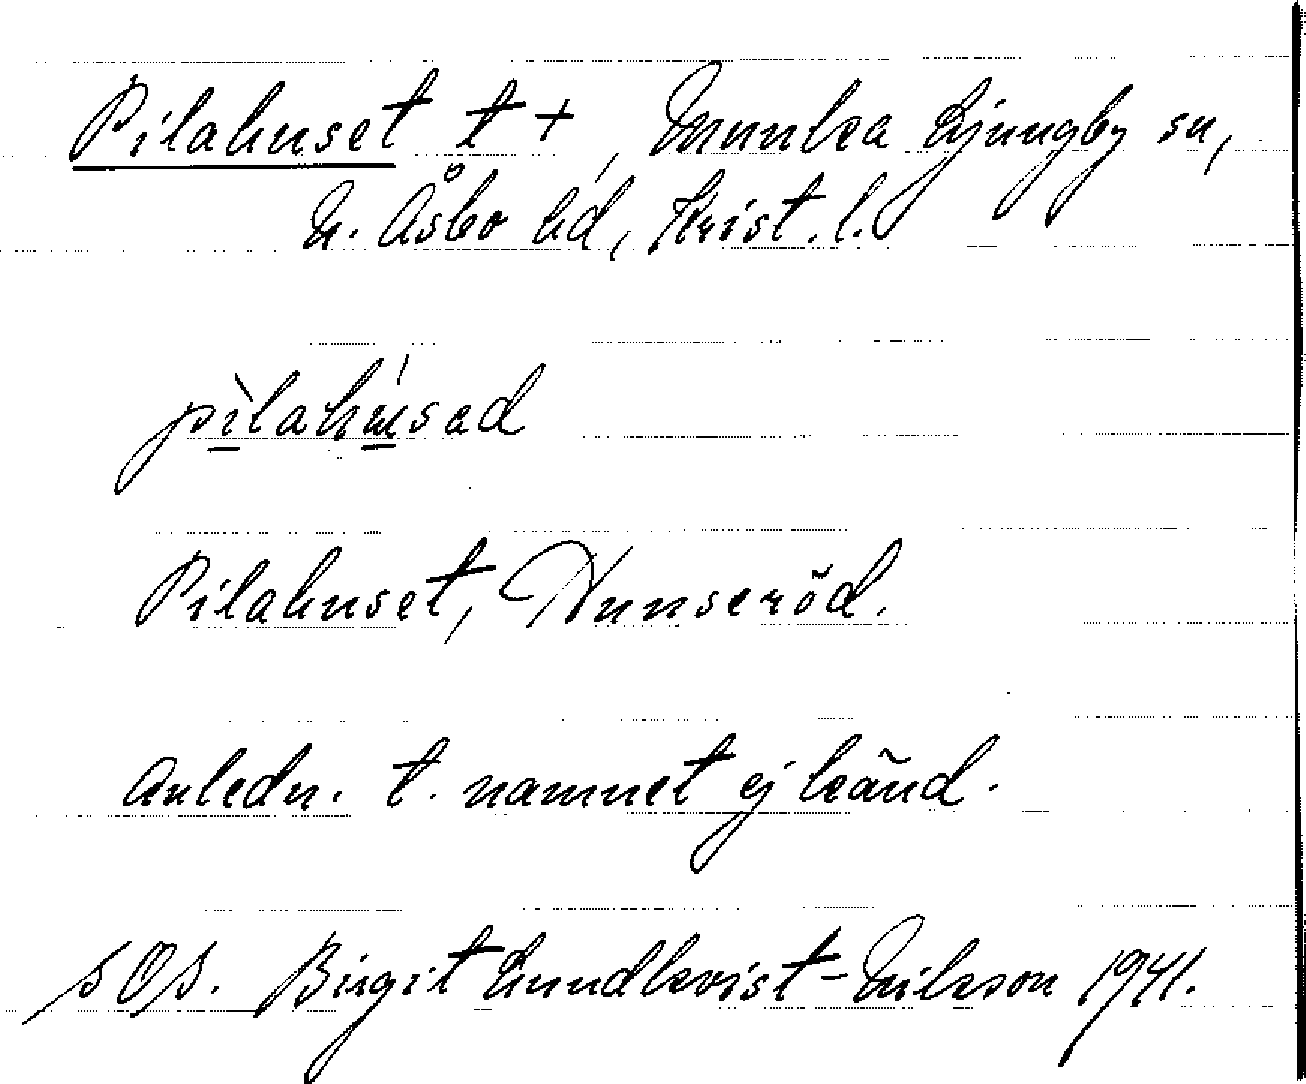 Pilahuset t +, Munka Ljungby sn,
N. Åsbo hd, Krist. l.
pìlahúsad
Pilahuset, Nunseröd.
Anledn. t. namnet ej känd.
SOS. Birgit Lundkvist-Nilsson 1941.